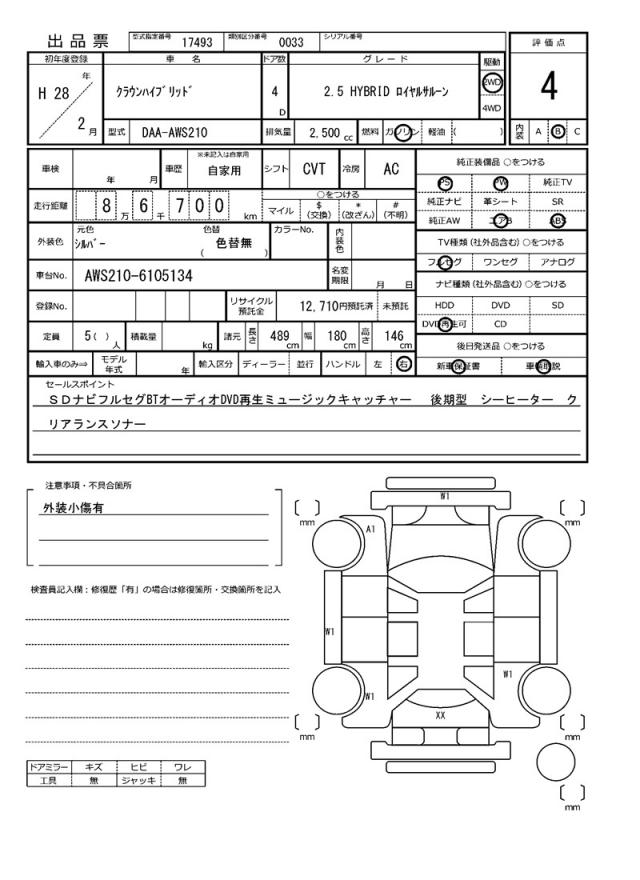 出品票 型式指定番号 17493 類別区分番号 0033 シリアル番号
評価点
4
初年度登録 車名 ドア数 グレード 駆動
H 28 年 2 月
クラウンハイブリッド 4 D 2.5 HYBRID ロイヤルサルーン 2WD 4WD
型式 DAA-AWS210 排気量 2,500 cc 燃料 ガソリン 軽油 ( )
内装 A B C
車検 年 月 車歴 ※未記入は自家用 自家用 シフト CVT 冷房 AC
走行距離 8 万 6 千 7 0 0 km
○をつける
マイル $ (交換) * (改ざん) # (不明)
外装色 元色 シルバー 色替 ( 色替無 ) カラーNo. 内装色
車台No. AWS210-6105134 名変期限 月 日
登録No. リサイクル預託金 12,710円預託済 未預託
定員 5( ) 人 積載量 kg 諸元 長さ 489 cm 幅 180 cm 高さ 146 cm
輸入車のみ⇒ モデル年式 年 輸入区分 ディーラー 並行 ハンドル 左 右
純正装備品 ○をつける
PS PW 純正TV
純正ナビ 革シート SR
純正AW エアB ABS
TV種類 (社外品含む) ○をつける
フルセグ ワンセグ アナログ
ナビ種類 (社外品含む) ○をつける
HDD DVD SD
DVD再生可 CD
後日発送品 ○をつける
新車保証書 車輌取説
セールスポイント
SDナビフルセグBTオーディオDVD再生ミュージックキャッチャー 後期型 シーヒーター ク
リアランスソナー
注意事項・不具合箇所
外装小傷有
検査員記入欄：修復歴「有」の場合は修復箇所・交換箇所を記入
W1
mm mm
A1
W1
W1 W1
XX
mm mm
mm
ドアミラー キズ ヒビ ワレ
工具 無 ジャッキ 無